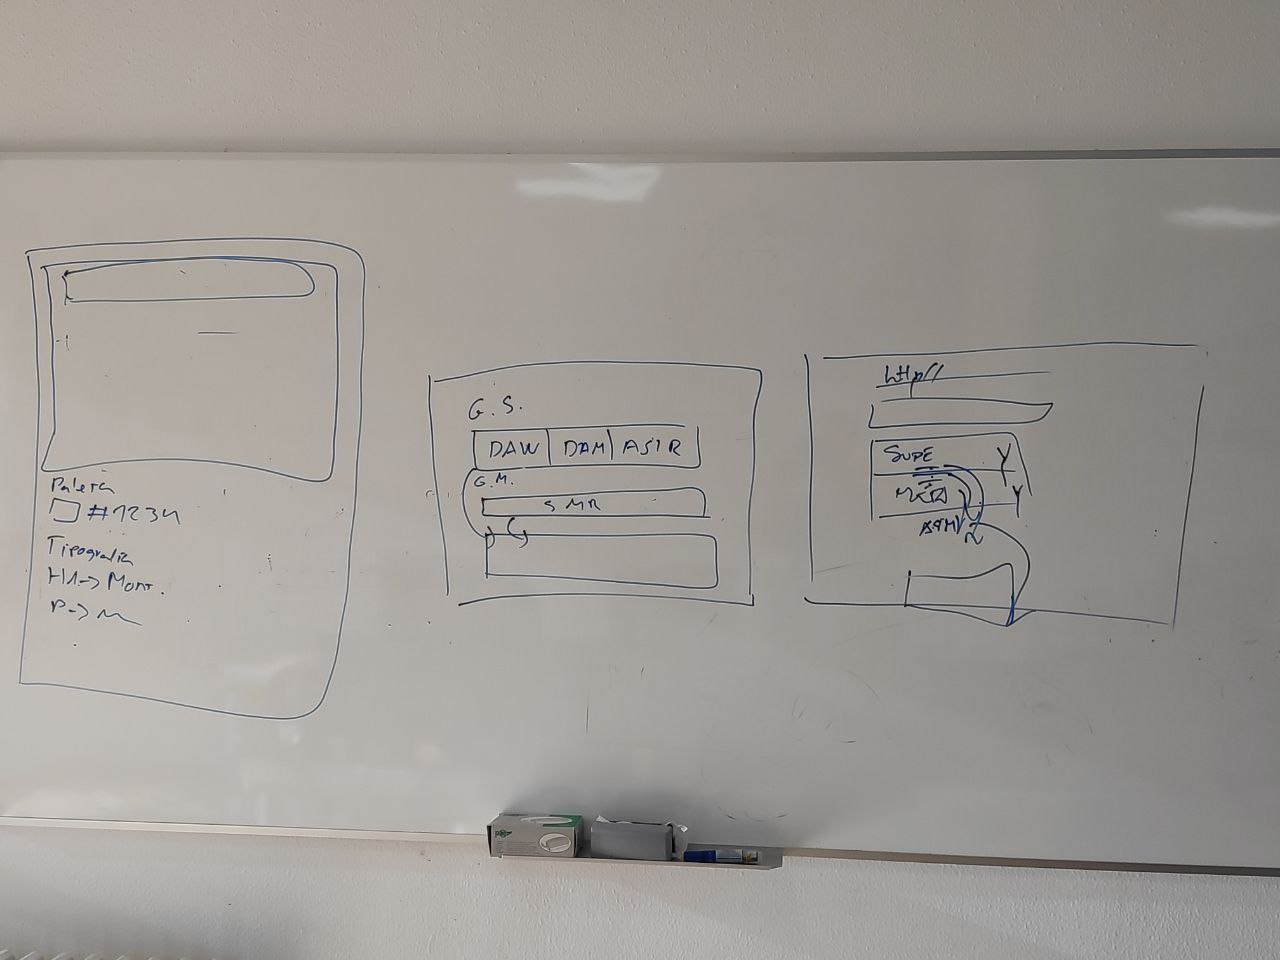 Paleta
#1234
Tipografia
H1-> Mont.
P->
G. S.
DAW DAM ASIR
G.M.
SMR
http//
SUPE